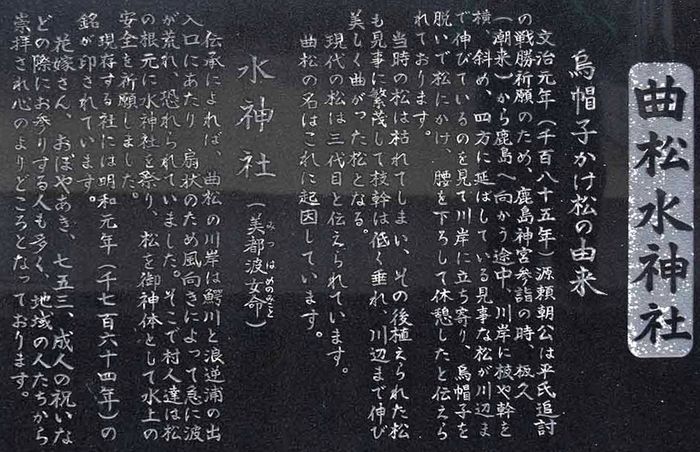 曲松水神社
烏帽子かけ松の由来
文治元年（千百八十五年）源頼朝公は平氏追討
の戦勝祈願のため、鹿島神宮参詣の時、板久
（潮来）から鹿島へ向かう途中、川岸に枝や幹を
横、斜め、四方に延ばしている見事な松が川辺ま
で伸びているのを見て川岸に立ち寄り、烏帽子を
脱いで松にかけ、腰を下ろして休憩したと伝えら
れております。
当時の松は枯れてしまい、その後植えられた松
も見事に繁茂して枝幹は低く垂れ、川辺まで伸び
美しく曲がった松となる。
現代の松は三代目と伝えられています。
曲松の名はこれに起因しています。
水神社（美都波女命）
みつはめのみこと
伝承によれば、曲松の川岸は鰐川と浪逆浦の出
入口にあたり、扇状のため風向きによって急に波
が荒れ、恐れられていました。そこで村人達は松
の根元に水神社を祭り、松を御神体として水上の
安全を祈願しました。
現存する社には明和元年（千七百六十四年）の
銘が印されています。
花嫁さん、おぼやあき、七五三、成人の祝いな
どの際にお参りする人も多く、地域の人たちから
崇拝され心のよりどころとなっております。